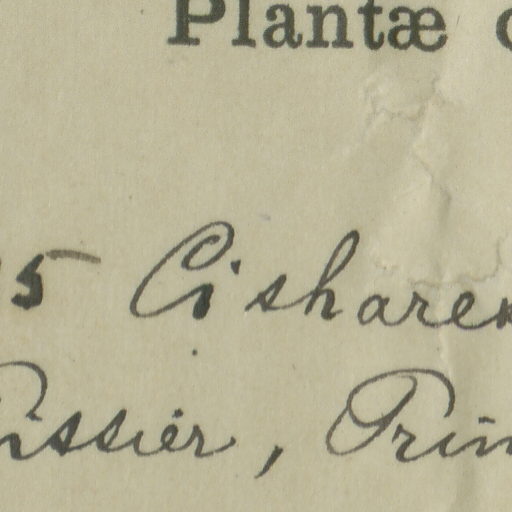 Plantæ
5 Ci share
issier, Prin